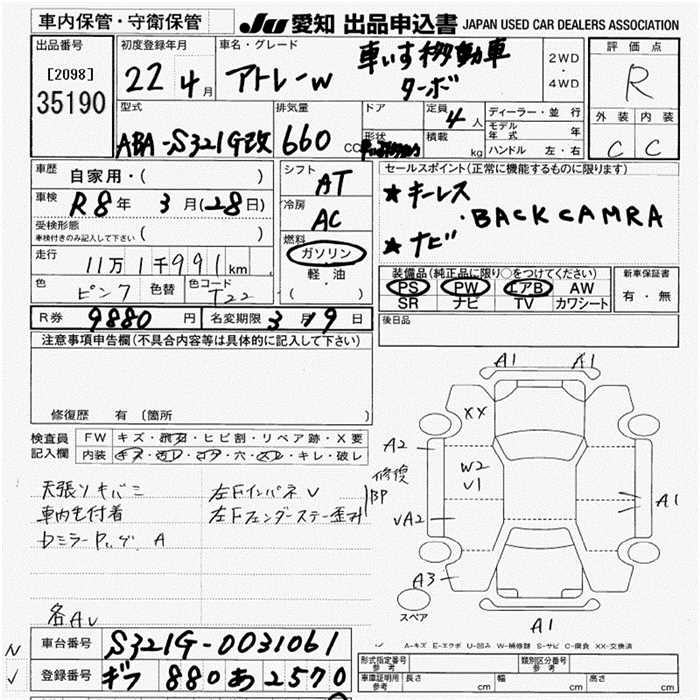 車内保管・守衛保管
JU 愛知 出品申込書 JAPAN USED CAR DEALERS ASSOCIATION
出品番号
[2098]
35190
初度登録年月
22年4月
車名・グレード
アトレーW 車いす移動車
ターボ
2WD
・
4WD
評価点
R
外装 内装
C C
型式
ABA-S321G改
排気量
660 CC
ドア
形状
定員
4人
積載
kg
ディーラー・並行
モデル年式 年
ハンドル 左・右
車歴
自家用・( )
車検
R8年 3月(28日)
受検形態
車検付きのみ記入して下さい ( )
走行
11万1千991km
色
ピンク
色替
色コード
T22
シフト
AT
冷房
AC
燃料
ガソリン
軽・油
( )
セールスポイント(正常に機能するものに限ります)
★キーレス
・BACK CAMRA
★ナビ
装備品(純正品に限り○をつけてください)
PS PW エアB AW
SR ナビ TV カワシート
新車保証書
有・無
R券 9880円
名変期限 3月9日
後日品
注意事項申告欄(不具合内容等は具体的に記入して下さい)
修復歴 有 〔箇所 〕
検査員
記入欄
FW キズ・飛石・ヒビ割・リペア跡・X要
内装 キズ・汚レ・コゲ・穴・スレ・キレ・破レ
天張りキバミ
車内毛付着
左FインパネV
左Fフェンダーステー歪み
各AV
A1 A1
XX
A2
W2
V1
修復
BP
VA2
A1
A3
スペア
A1
A-キズ E-エクボ U-凹み W-補修跡 S-サビ C-腐食 XX-交換済
N
V
車台番号 S321G-0031061
登録番号 ギフ 880 あ 2570
形式指定番号
参考
類別区分番号
参考
車庫証明用
参考
長さ cm
幅 cm
高さ cm